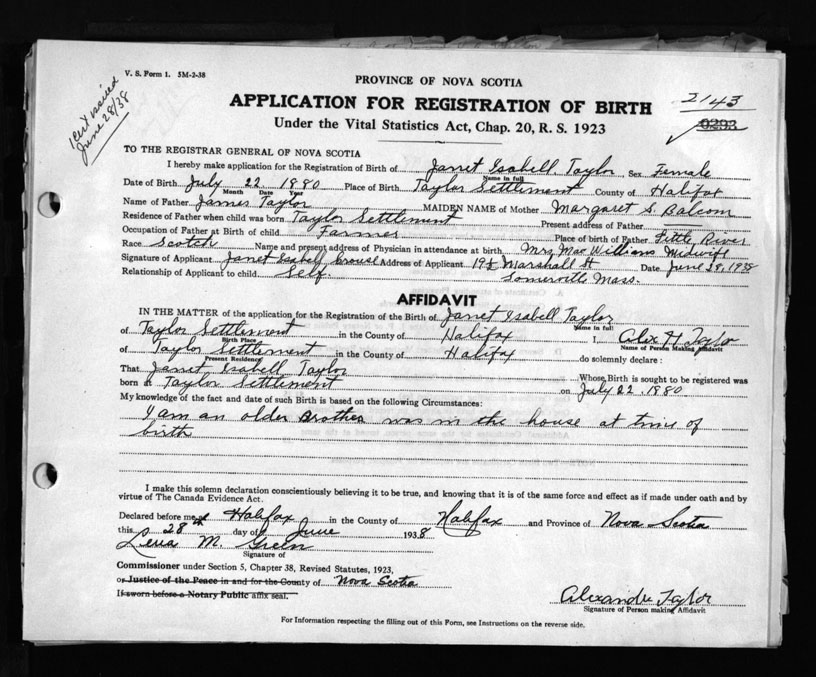 V. S. Form 1.  5M-2-38
1 Cert issued
June 28/38
PROVINCE OF NOVA SCOTIA
APPLICATION FOR REGISTRATION OF BIRTH
2143
Under the Vital Statistics Act, Chap. 20, R. S. 1923
9293
TO THE REGISTRAR GENERAL OF NOVA SCOTIA
I hereby make application for the Registration of Birth of Janet Isabell Taylor Sex Female
Name in full
Date of Birth July 22 1880 Place of Birth Taylor Settlement County of Halifax
Month Date Year
Name of Father James Taylor MAIDEN NAME of Mother Margaret S. Balcom
Residence of Father when child was born Taylor Settlement Present address of Father
Occupation of Father at Birth of child Farmer Place of birth of Father Little River
Race Scotch Name and present address of Physician in attendance at birth Mrs. Mac Williams Midwife
Signature of Applicant Janet Isabell Crouse Address of Applicant 19½ Marshall St Date June 28, 1938
Relationship of Applicant to child Self. Somerville Mass.
AFFIDAVIT
IN THE MATTER of the application for the Registration of the Birth of Janet Isabell Taylor
Name in full
of Taylor Settlement in the County of Halifax I, Alex H Taylor
Birth Place Name of Person Making Affidavit
of Taylor Settlement in the County of Halifax do solemnly declare :
Present Residence
That Janet Isabell Taylor Whose Birth is sought to be registered was
born at Taylor Settlement on July 22. 1880
My knowledge of the fact and date of such Birth is based on the following Circumstances:
I am an older Brother was in the house at time of
birth
I make this solemn declaration conscientiously believing it to be true, and knowing that it is of the same force and effect as if made under oath and by
virtue of The Canada Evidence Act.
Declared before me at Halifax in the County of Halifax and Province of Nova Scotia
this 28th day of June 1938
Lena M. Green
Signature of
Commissioner under Section 5, Chapter 38, Revised Statutes, 1923,
or Justice of the Peace in and for the County of Nova Scotia
If sworn before a Notary Public affix seal.
Alexander Taylor
Signature of Person making Affidavit
For Information respecting the filling out of this Form, see Instructions on the reverse side.